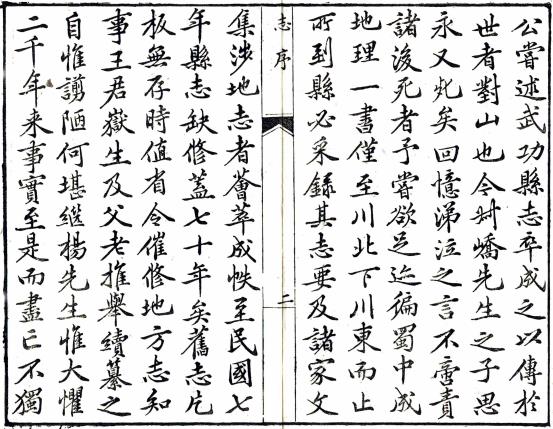 公嘗述武功縣志卒成之以傳於
世者對山也今斠嶠先生之子思
永又死矣回憶涕泣之言不啻責
諸後死者予嘗欲足迹徧蜀中成
地理一書僅至川北下川東而止
所到縣必采錄其志要及諸家文
志序
二
集涉地志者薈萃成帙至民國七
年縣志缺修蓋七十年矣舊志片
板無存時值省令催修地方志知
事王君嶽生及父老推舉續纂之
自惟謭陋何堪繼楊先生惟大懼
二千年来事實至是而盡亡不獨